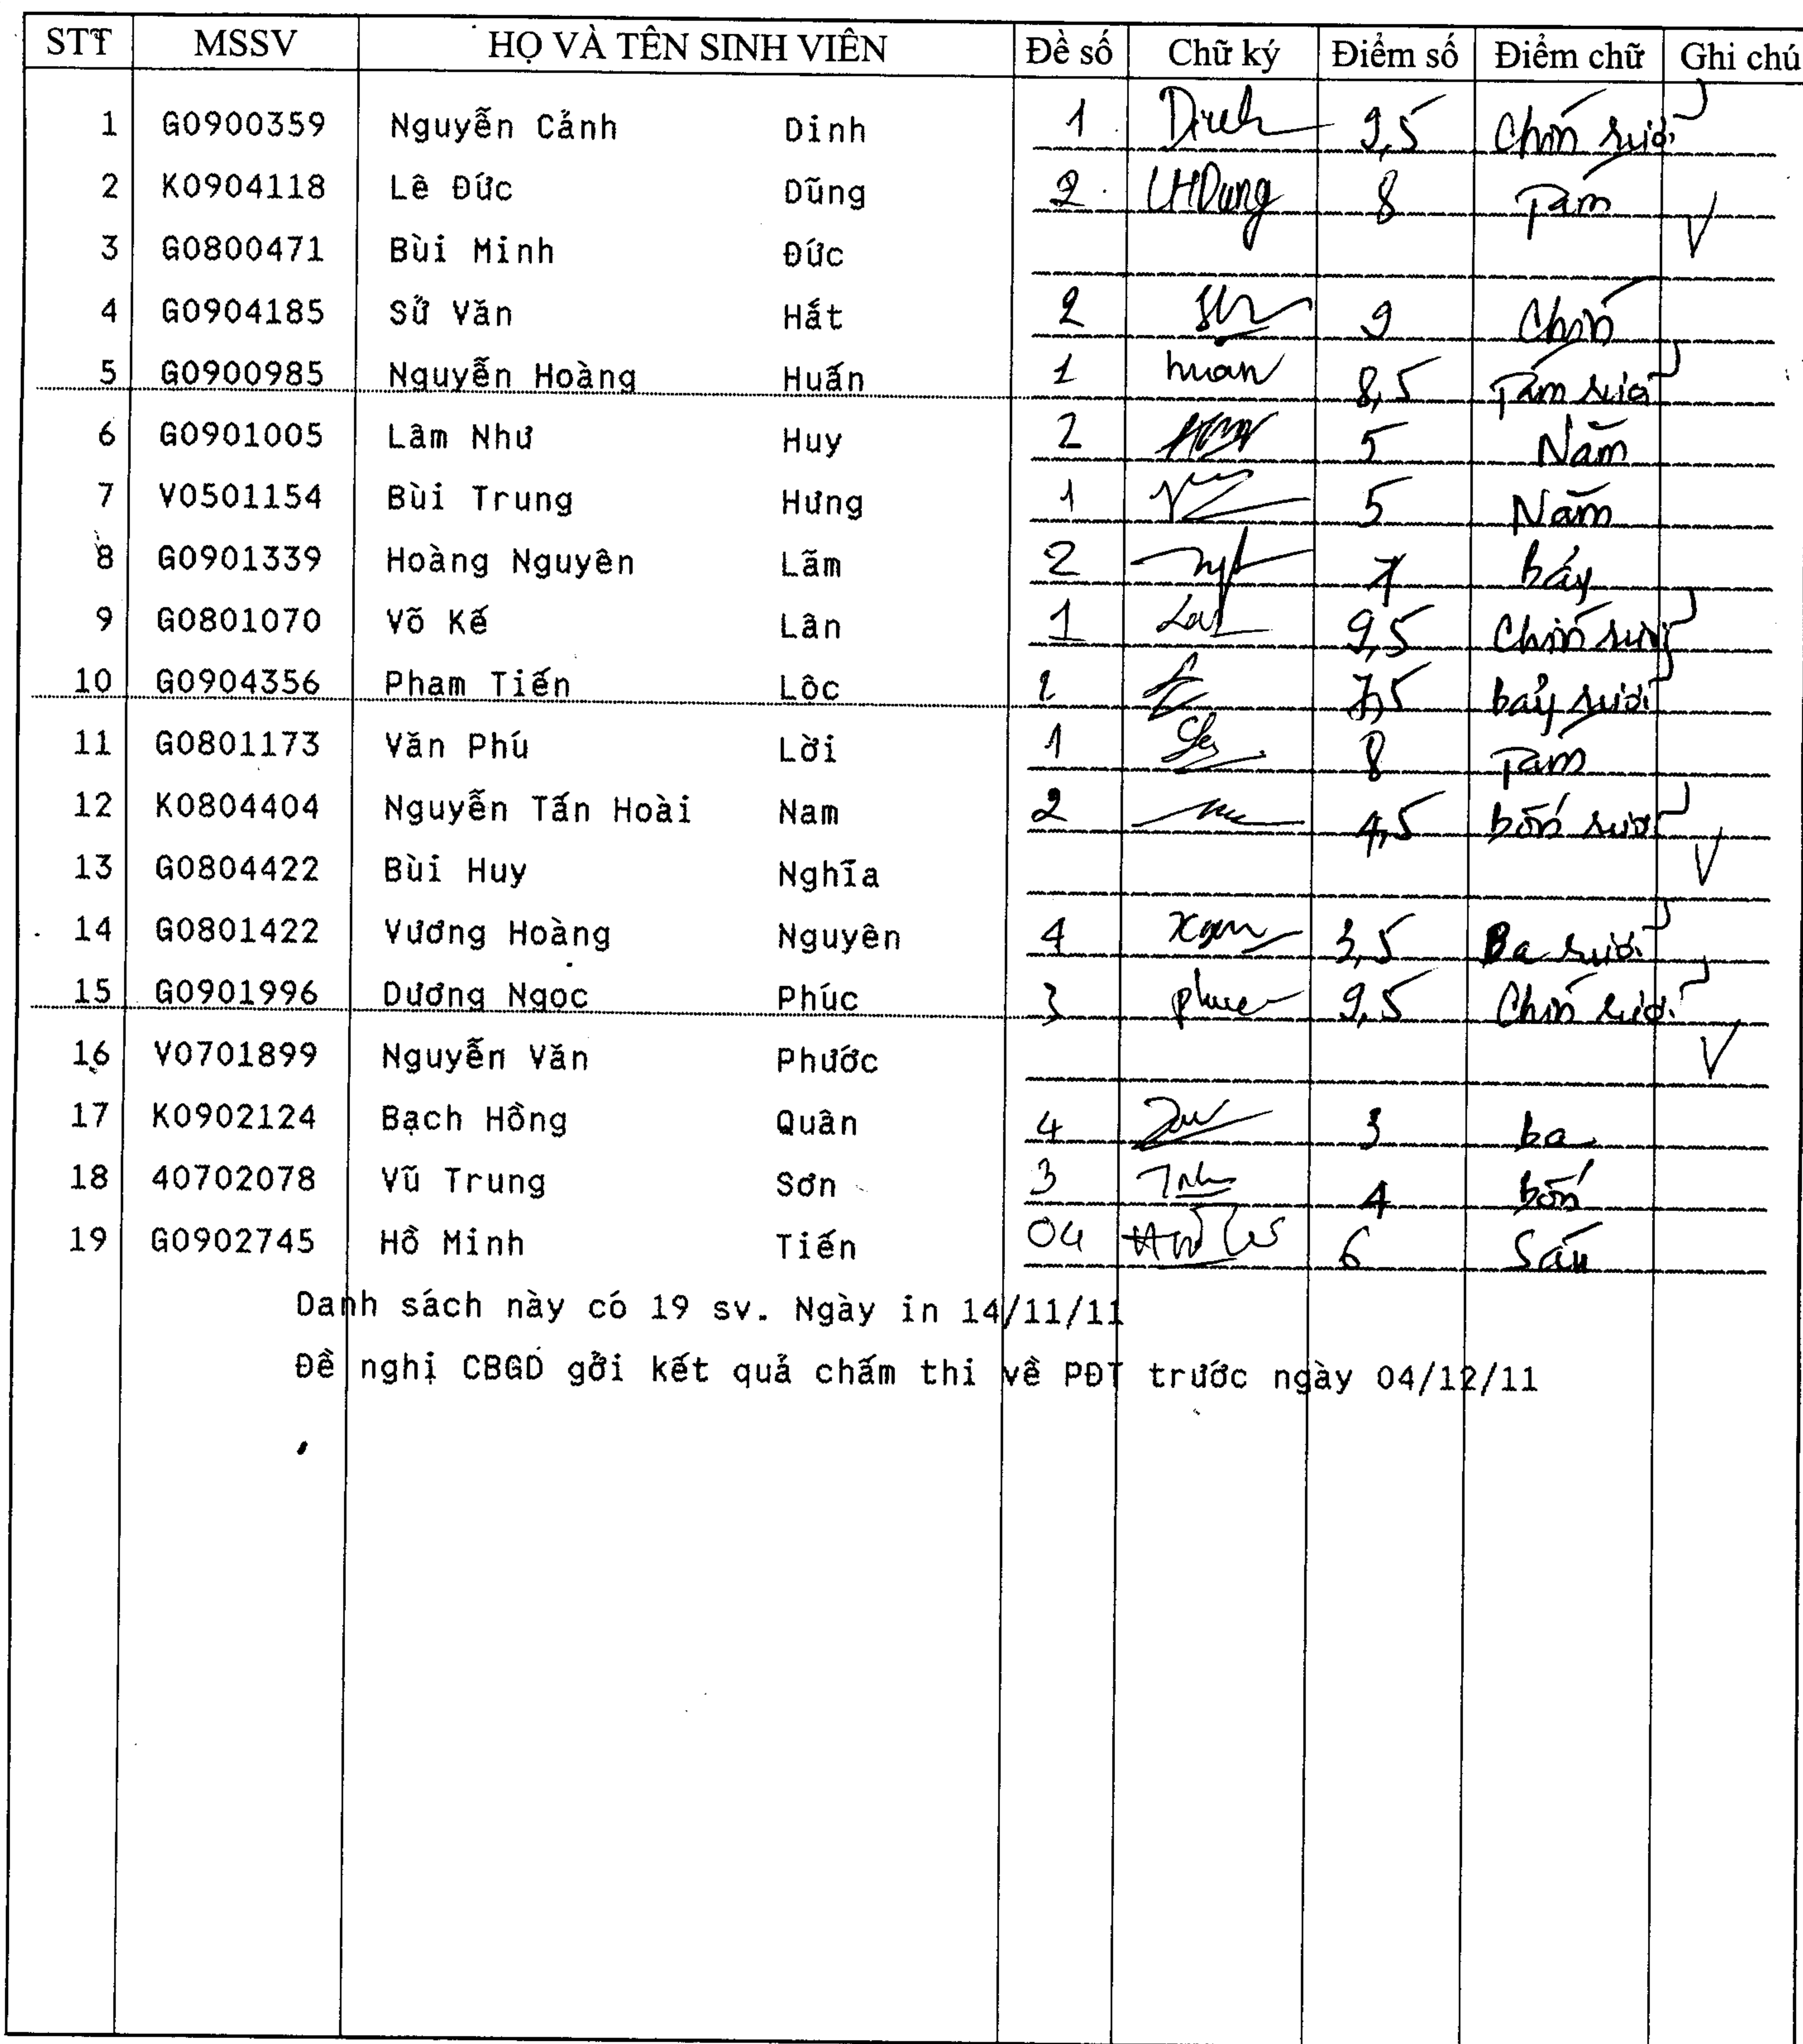 STT MSSV HỌ VÀ TÊN SINH VIÊN Đề số Chữ ký Điểm số Điểm chữ Ghi chú
1 G0900359 Nguyễn Cảnh Dinh 1 Dinh 9,5 Chín rưỡi
2 K0904118 Lê Đức Dũng 2 LHDung 8 Tám V
3 G0800471 Bùi Minh Đức
4 G0904185 Sử Văn Hắt 2 9 Chín
5 G0900985 Nguyễn Hoàng Huấn 1 huan 8,5 Tám rưỡi
6 G0901005 Lâm Như Huy 2 5 Năm
7 V0501154 Bùi Trung Hưng 1 5 Năm
8 G0901339 Hoàng Nguyên Lãm 2 7 bảy
9 G0801070 Võ Kế Lân 1 9,5 Chín rưỡi
10 G0904356 Phạm Tiến Lộc 2 7,5 bảy rưỡi
11 G0801173 Văn Phú Lời 1 8 Tám
12 K0804404 Nguyễn Tấn Hoài Nam 2 4,5 bốn rưỡi
13 G0804422 Bùi Huy Nghĩa V
14 G0801422 Vương Hoàng Nguyên 4 3,5 Ba rưỡi
15 G0901996 Dương Ngọc Phúc 3 phuc 9,5 Chín rưỡi
16 V0701899 Nguyễn Văn Phước V
17 K0902124 Bạch Hồng Quân 4 3 ba
18 40702078 Vũ Trung Sơn 3 4 bốn
19 G0902745 Hồ Minh Tiến 04 6 Sáu
Danh sách này có 19 sv. Ngày in 14/11/11
Đề nghị CBGD gởi kết quả chấm thi về PĐT trước ngày 04/12/11